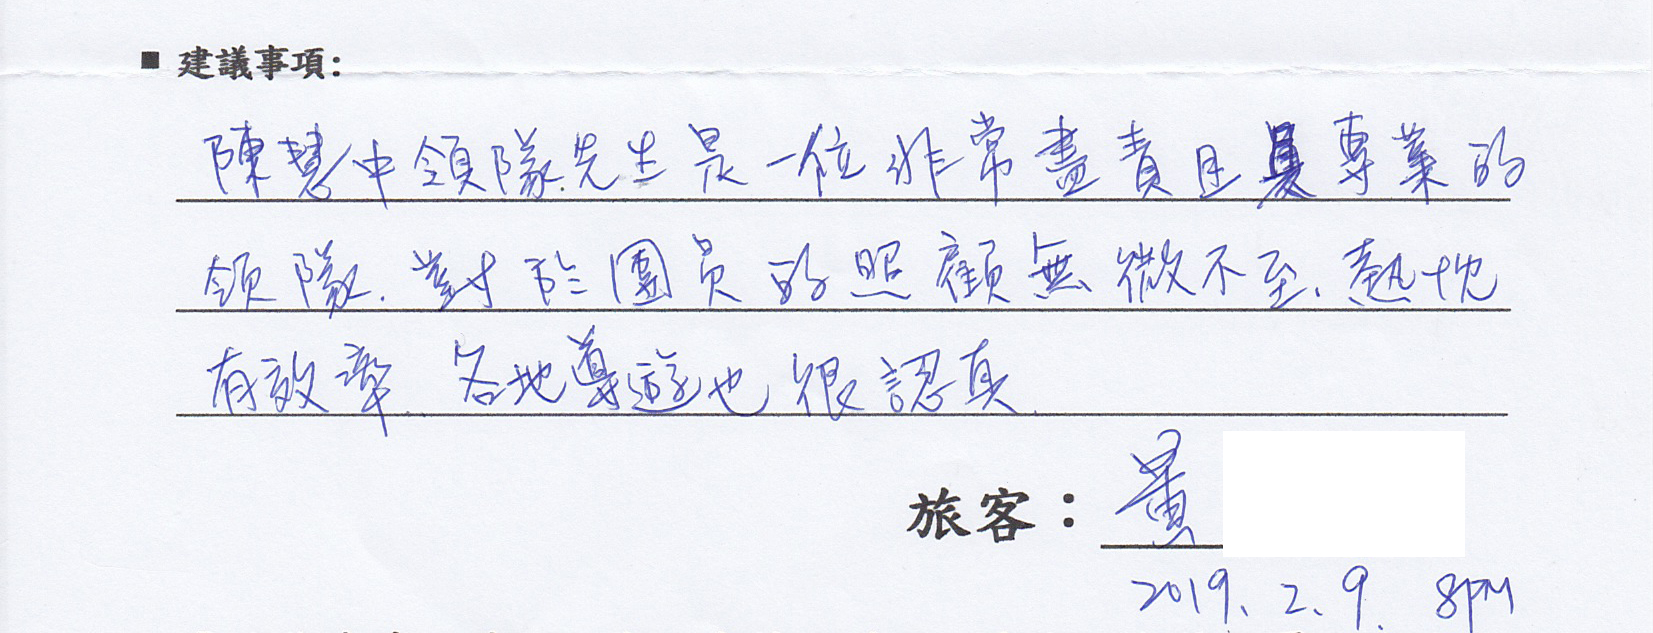 ■ 建議事項:
陳慧中領隊先生是一位非常盡責且具專業的
領隊.對於團員的照顧無微不至.熱忱
有效率.各地導遊也很認真.
旅客：黃
2019.2.9. 8PM